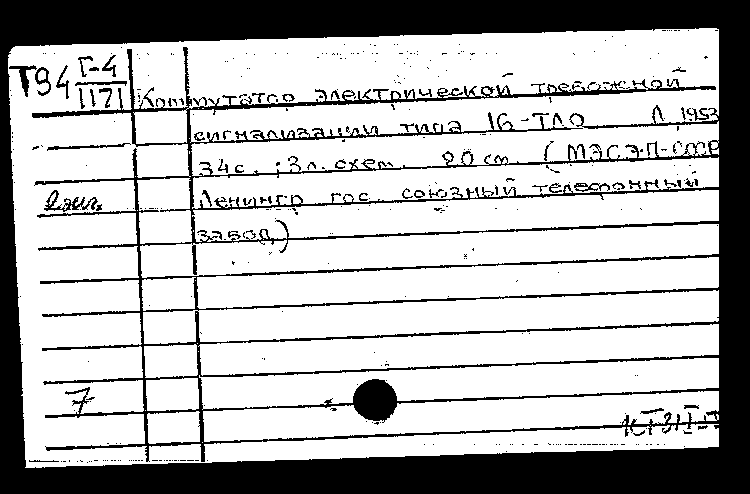 Т94 Г-4
1171
Коммутатор электрической тревожной
сигнализации типа 16-ТЛО Л, 1953
34с.; 3л. схем. 20 см (МЭСЭП-СССР
2 экз. Ленингр гос. союзный телефонный
завод)
7